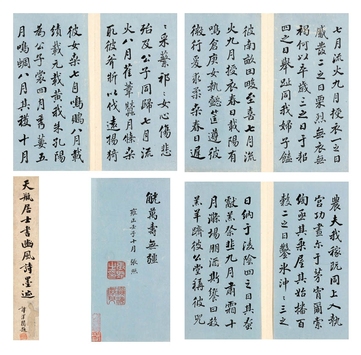 七月流
火九月授衣一之日
觱發二之日栗烈無衣無
褐何以卒歲三之日于耜
四之日舉趾同我婦子饁
彼南畝田畯至喜七月流
火九月授衣春日載陽有
鳴倉庚女執懿筐遵彼
微行爰求柔桑春日遲
采蘩祁女心傷悲
殆及公子同歸七月流
火八月萑葦蠶月條桑
取彼斧斨以伐遠揚猗
彼女桑七月鳴鵙八月載
績載玄載黃我朱孔陽
為公子裳四月秀葽五
月鳴蜩八月其穫十月
農夫我稼既同上入執
宮功晝爾于茅宵爾索
綯亟其乘屋其始播百
穀二之日鑿冰沖三之
日納于凌陰四之日其蚤
獻羔祭韭九月肅霜十
月滌場朋酒斯饗曰殺
羔羊躋彼公堂稱彼兕
觥萬壽無疆
雍正壬子十月 張照
天瓶居士書豳風詩墨迹